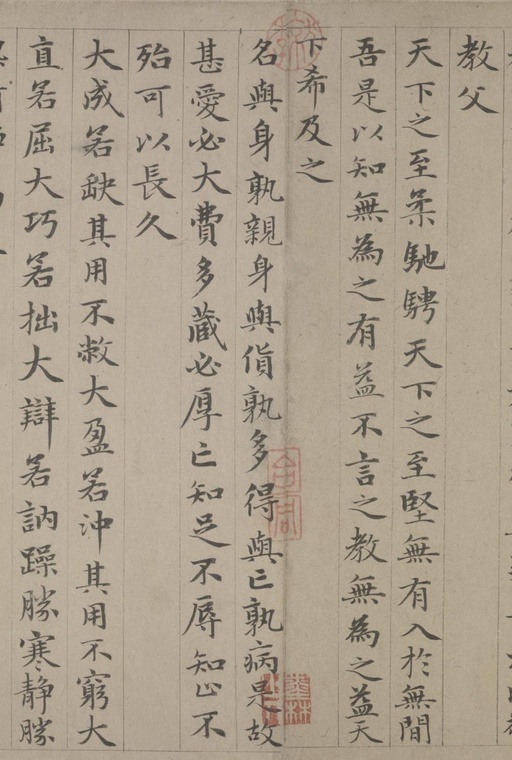 教父
天下之至柔馳騁天下之至堅無有入於無間
吾是以知無為之有益不言之教無為之益天
下希及之
名與身孰親身與貨孰多得與亡孰病是故
甚愛必大費多藏必厚亡知足不辱知止不
殆可以長久
大成若缺其用不敝大盈若沖其用不窮大
直若屈大巧若拙大辯若訥躁勝寒静勝